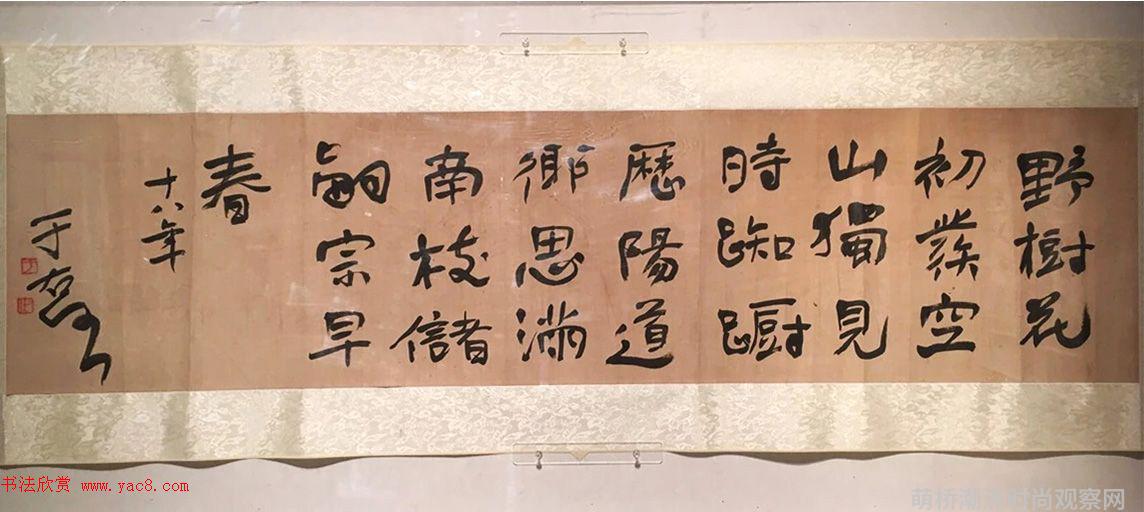 野樹花
初發空
山獨見
時踟躕
歷陽道
鄉思滿
南枝儲
嗣宗早
春
十八年
于右任
书法欣赏 www.yac8.com
萌桥潮流时尚观察网